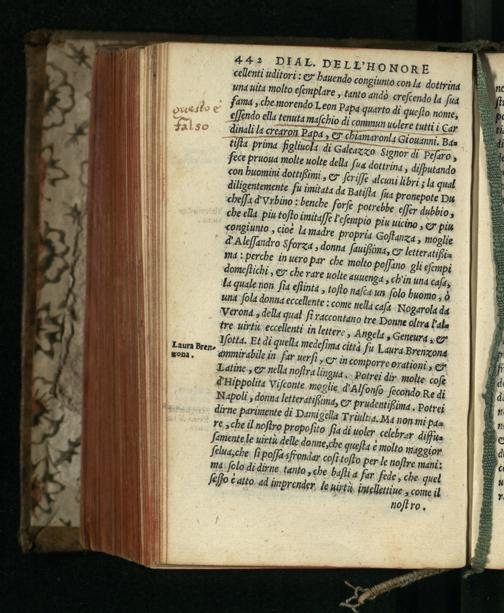 442 DIAL. DELL'HONORE
cellenti uditori: & hauendo congiunto con la dottrina
una uita molto esemplare, tanto andò crescendo la sua
fama, che morendo Leon Papa quarto di questo nome,
questo è
falso
essendo ella tenuta maschio di commun uolere tutti i Car
dinali la crearon Papa, & chiamaronla Giouanni. Ba-
tista prima figliuola di Galeazzo Signor di Pesaro,
fece pruoua molte uolte della sua dottrina, disputando
con huomini dottißimi, & scrisse alcuni libri; la qual
diligentemente fu imitata da Batista sua pronepote Du
chessa d'Vrbino: benche forse potrebbe esser dubbio,
che ella piu tosto imitasse l'esempio piu uicino, & piu
congiunto, cioè la madre propria Gostanza, moglie
d'Alessandro Sforza, donna sauißima, & letteratißi-
ma: perche in uero par che molto possano gli esempi
domestichi, & che rare uolte auuenga, ch'in una casa,
la quale non sia estinta, tosto nasca un solo huomo, ò
una sola donna eccellente: come nella casa Nogarola da
Verona, della qual si raccontano tre Donne oltra l'al-
tre uirtù eccellenti in lettere, Angela, Geneura, &
Isotta. Et di quella medesima città fu Laura Brenzona
Laura Bren-
zona.
ammirabile in far uersi, & in comporre orationi, &
Latine, & nella nostra lingua. Potrei dir molte cose
d'Hippolita Visconte moglie d'Alfonso secondo Re di
Napoli, donna letteratißima, & prudentißima. Potrei
dirne parimente di Damigella Triultia. Ma non mi pa-
re, che il nostro proposito sia di uoler celebrar diffu-
samente le uirtù delle donne, che questa è molto maggior
selua, che si possa sfrondar così tosto per le nostre mani:
ma solo di dirne tanto, che basti a far fede, che quel
sesso è atto ad imprender le uirtù intellettiue, come il
nostro.